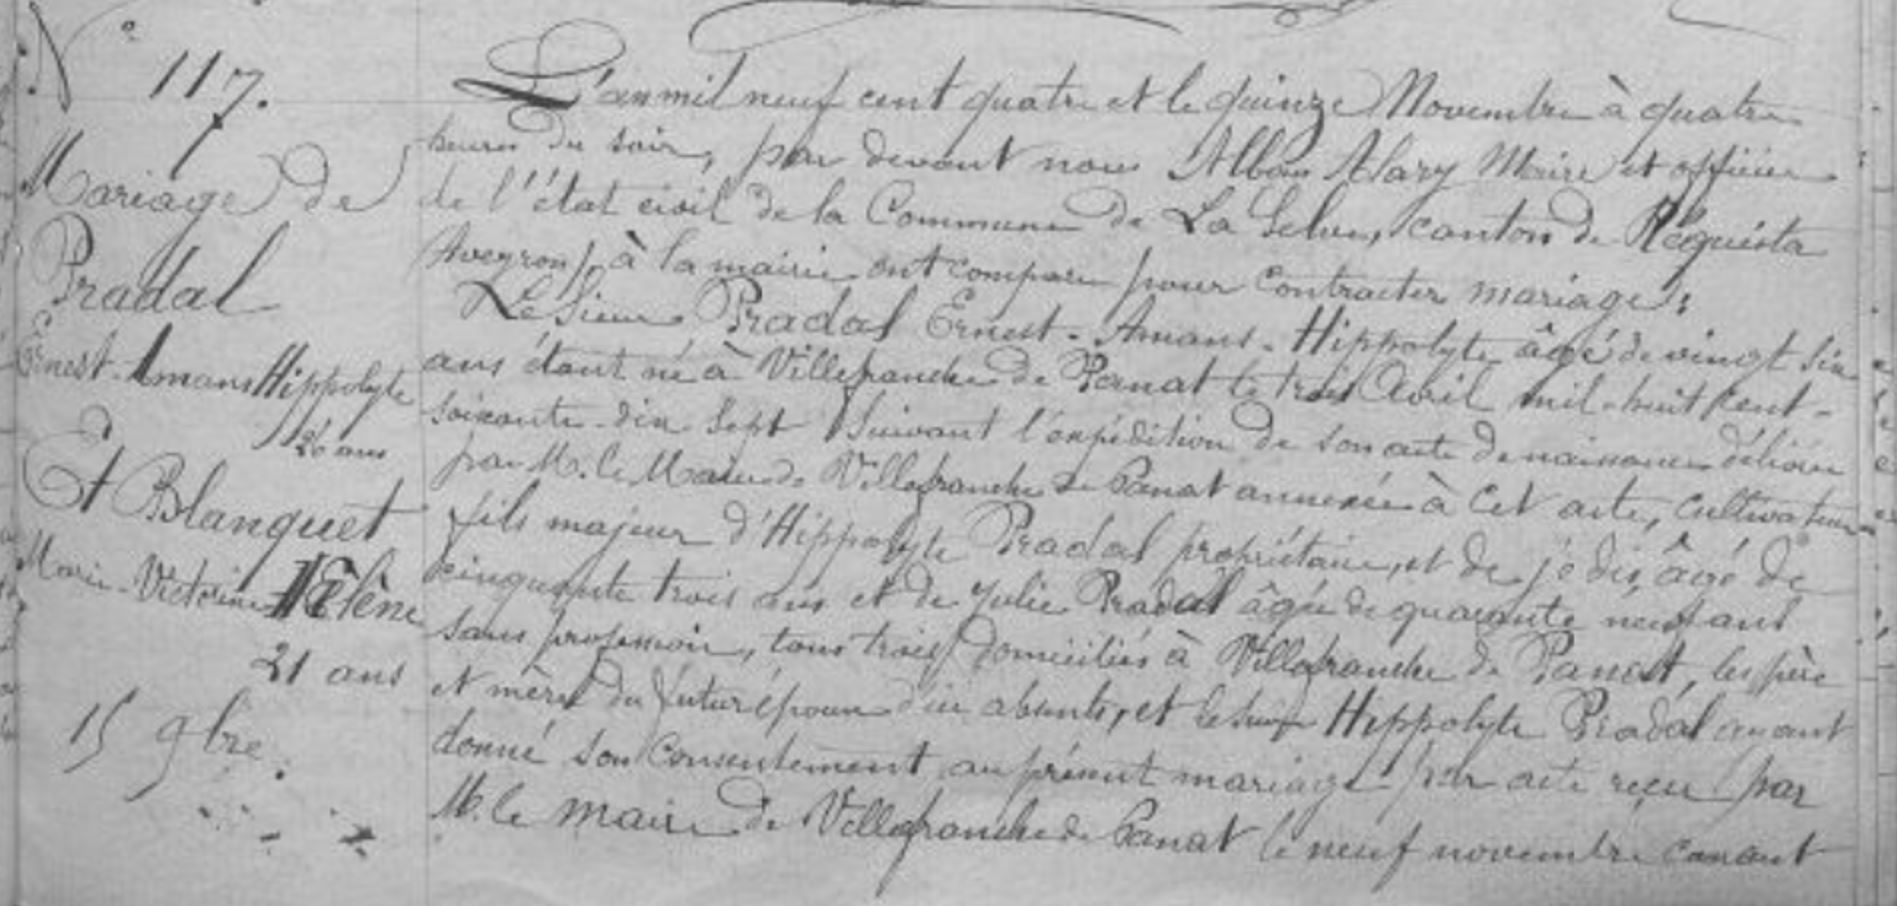 N° 117.
Mariage de
Pradal
Ernest-Amans Hippolyte
26 ans
Et Blanquet
Marie-Victorine Hélène
21 ans
15 9bre.
L'an mil neuf cent quatre et le quinze Novembre à quatre
heures du soir, par devant nous Alban Alary Maire et officier
de l'état civil de la Commune de La Selve, canton de Réquista
Aveyron), à la mairie ont comparu pour contracter mariage :
Le Sieur Pradal Ernest-Amans-Hippolyte âgé de vingt six
ans étant né à Villefranche de Panat le trois Avril mil-huit cent-
soixante-dix sept suivant l'expédition de son acte de naissance délivrée
par M. le Maire de Villefranche de Panat annexée à cet acte, cultivateur
fils majeur d'Hippolyte Pradal propriétaire, et de je dis, âgé de
cinquante trois ans et de Julie Pradal âgée de quarante neuf ans
sans profession, tous trois domiciliés à Villefranche de Panat, les père
et mère du futur époux d'ici absents, et le Hippolyte Pradal ayant
donné son consentement au présent mariage par acte reçu par
M. le maire de Villefranche de Panat le neuf novembre courant